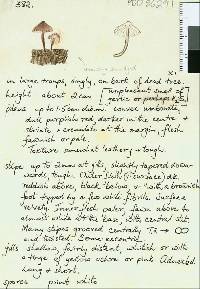 332.
in large troups, singly, on bark of dead tree.
height about 2 cm
unpleasant smell of
garlic or perhaps
pileus up to 1.5cm diam. convex umbonate,
dull purplish red, darker in the centre +
striate + crenulate at the margin, flesh
fawnish or pale.
Texture somewhat leathery + tough.
stipe up to 2mm at gills, slightly tapered down-
wards, tough. Outer (surface) etc.
reddish above, black below, + with a brownish
foot + a few white fibrils. Surface
velvety. Inner flesh paler, fawn above to
almost white at the base, with central slit.
Many stipes grooved centrally
and twisted. Some excentric.
gills shallow, fairly distant, whitish or with
a tinge of yellow ochre or pink. Adnexed.
Long + short.
spores print white